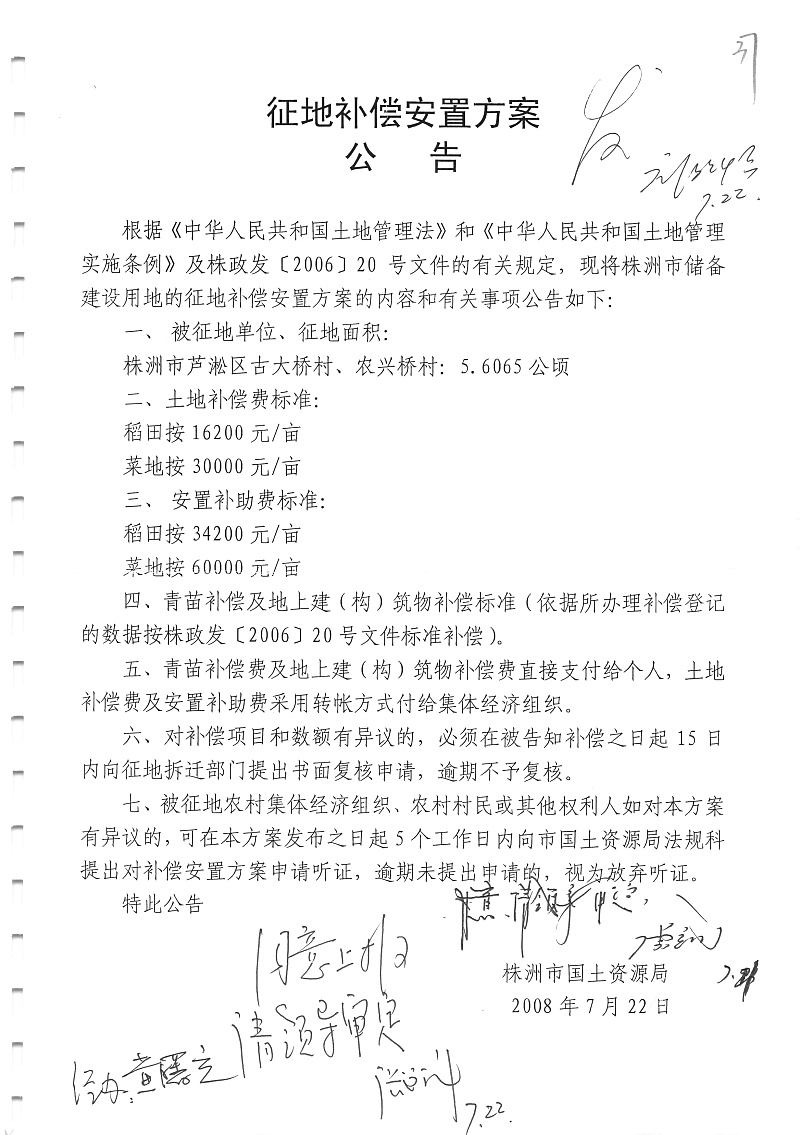 征地补偿安置方案
公 告
发
7.22.
根据《中华人民共和国土地管理法》和《中华人民共和国土地管理
实施条例》及株政发〔2006〕20 号文件的有关规定，现将株洲市储备
建设用地的征地补偿安置方案的内容和有关事项公告如下：
一、 被征地单位、征地面积：
株洲市芦淞区古大桥村、农兴桥村：5.6065 公顷
二、土地补偿费标准：
稻田按 16200 元/亩
菜地按 30000 元/亩
三、 安置补助费标准：
稻田按 34200 元/亩
菜地按 60000 元/亩
四、青苗补偿及地上建（构）筑物补偿标准（依据所办理补偿登记
的数据按株政发〔2006〕20 号文件标准补偿）。
五、青苗补偿费及地上建（构）筑物补偿费直接支付给个人，土地
补偿费及安置补助费采用转帐方式付给集体经济组织。
六、对补偿项目和数额有异议的，必须在被告知补偿之日起 15 日
内向征地拆迁部门提出书面复核申请，逾期不予复核。
七、被征地农村集体经济组织、农村村民或其他权利人如对本方案
有异议的，可在本方案发布之日起 5 个工作日内向市国土资源局法规科
提出对补偿安置方案申请听证，逾期未提出申请的，视为放弃听证。
特此公告
株洲市国土资源局
2008 年 7 月 22 日
同意上报
请领导审定
经办：黄
7.22.